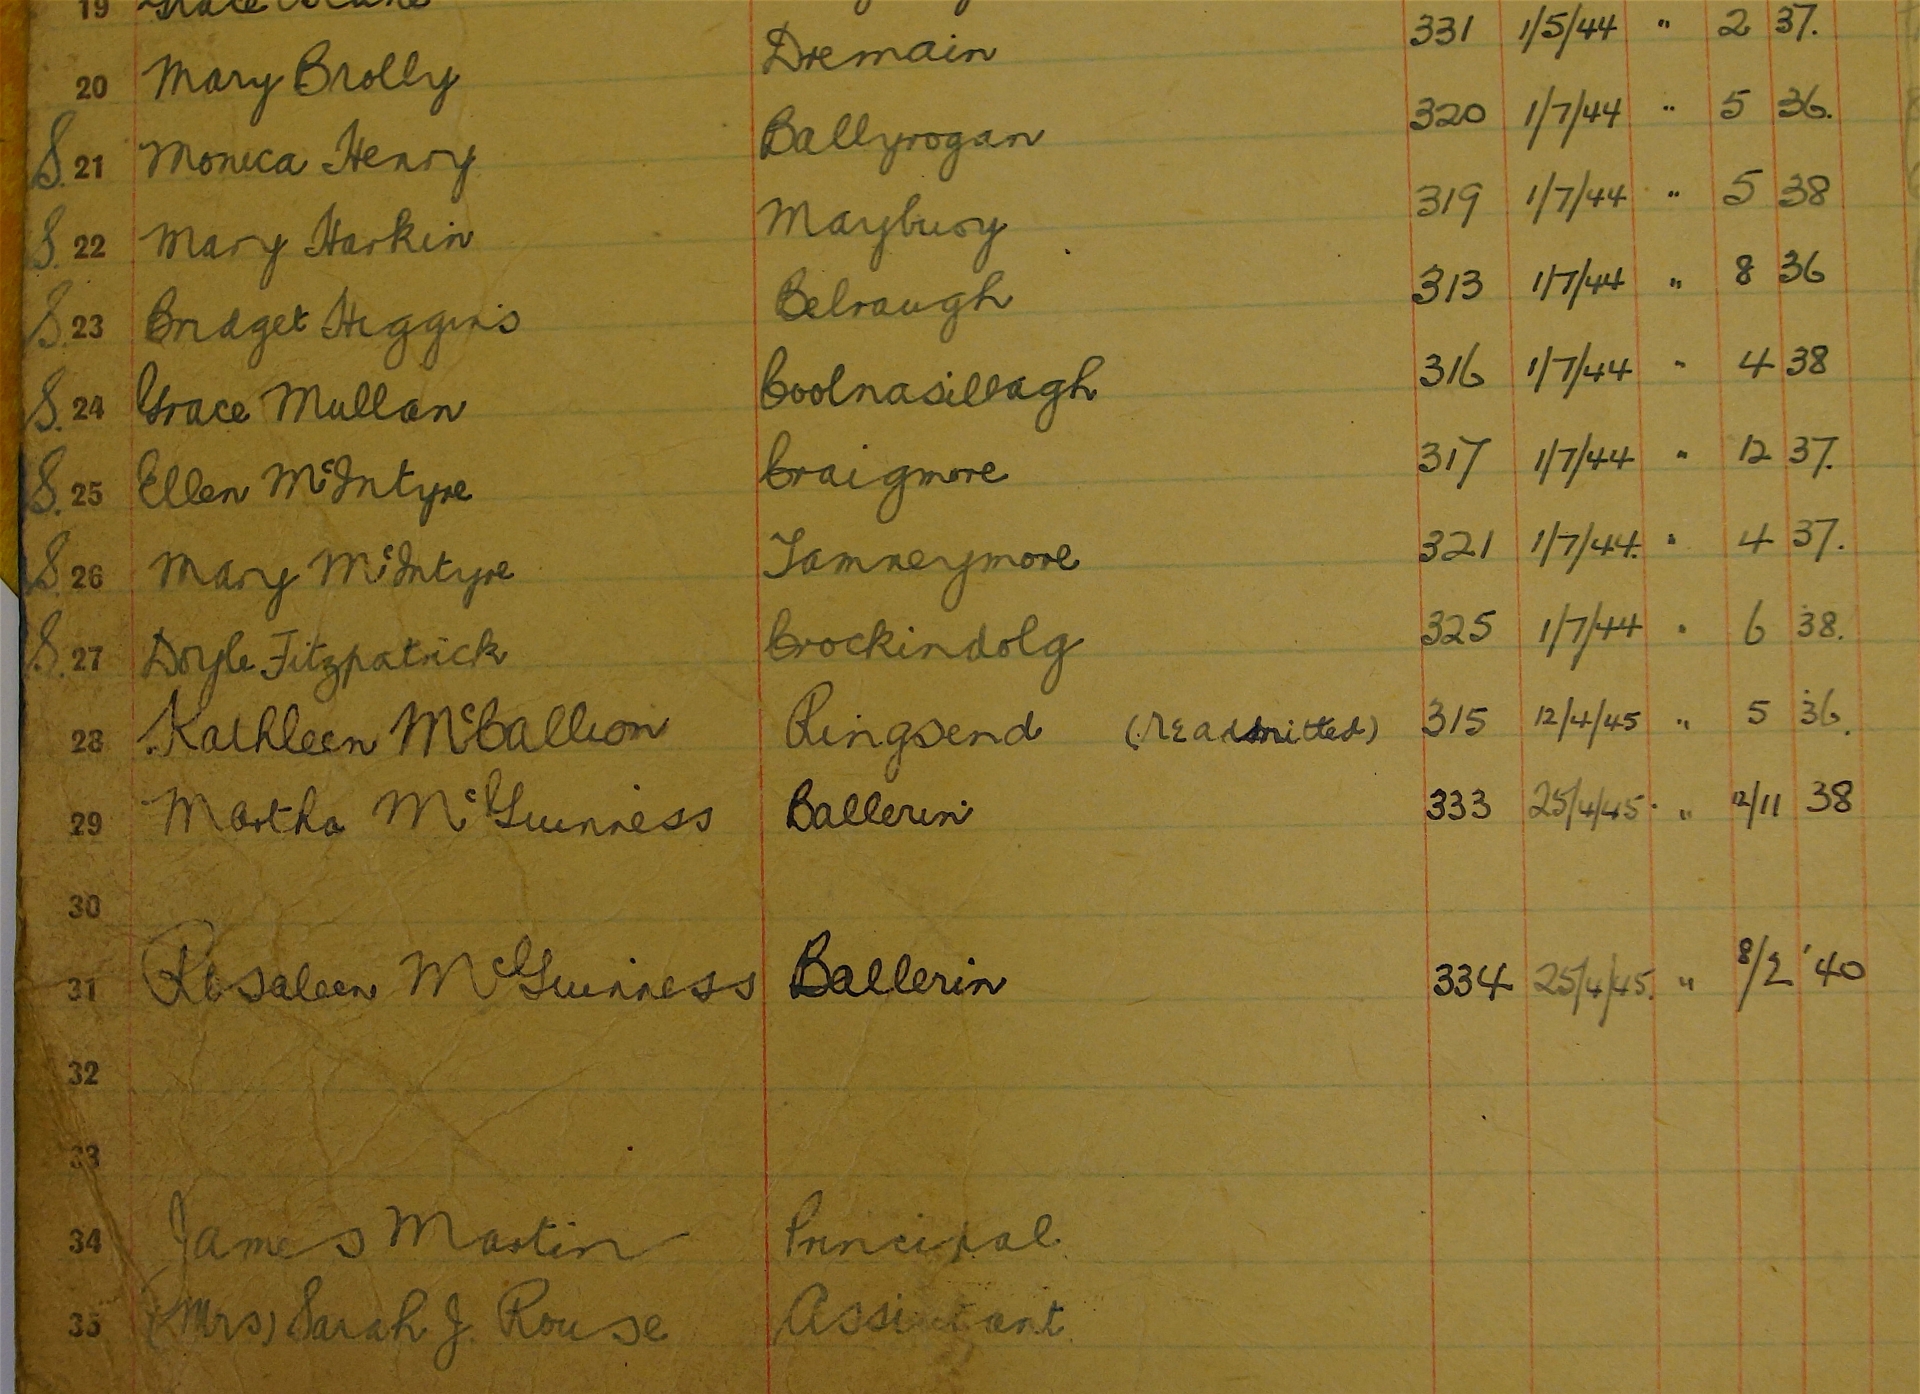 19
20 Mary Brolly Dremain 331 1/5/44 " 2 37.
S. 21 Monica Henry Ballyrogan 320 1/7/44 " 5 36.
S. 22 Mary Harkin Maybuoy 319 1/7/44 " 5 38
S. 23 Bridget Higgins Belraugh 313 1/7/44 " 8 36
S. 24 Grace Mullan Coolnasillagh 316 1/7/44 " 4 38
S. 25 Ellen McIntyre Craigmore 317 1/7/44 " 12 37.
S. 26 Mary McIntyre Tamneymore 321 1/7/44. " 4 37.
S. 27 Doyle Fitzpatrick Crockindolg 325 1/7/44 " 6 38.
28 Kathleen McCallion Ringsend (readmitted) 315 12/4/45 " 5 36.
29 Martha McGuinness Ballerin 333 25/4/45 " 12/11 38
30
31 Rosaleen McGuinness Ballerin 334 25/4/45. " 8/2 '40
32
33
34 James Martin Principal
35 (Mrs) Sarah J. Rouse Assistant